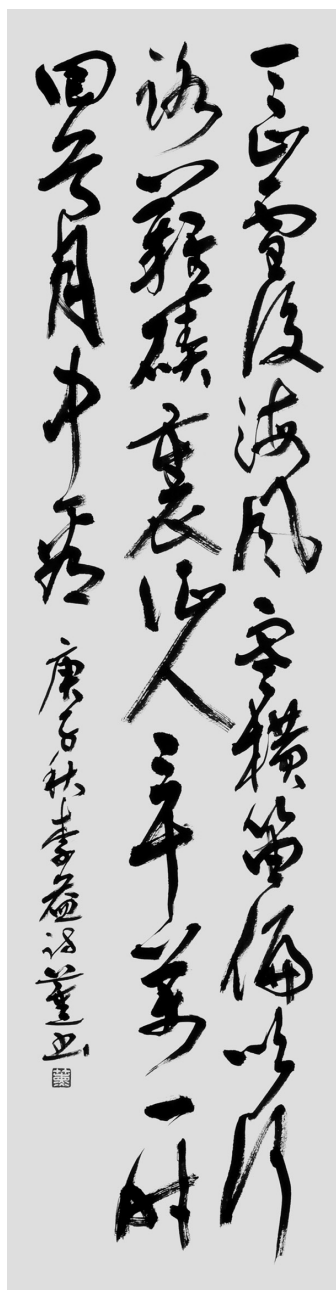 天山雪後海風寒橫笛偏吹行
路難磧裏征人三十萬一時
回首月中看
庚子秋李益詩書